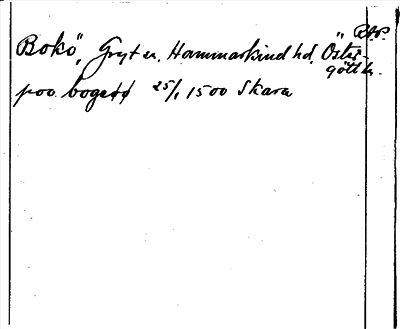 RAP.
Bokö, Gryt sn. Hammarkind hd. Öster-
götl l.
poo bogeöö 25/1 1500 Skara